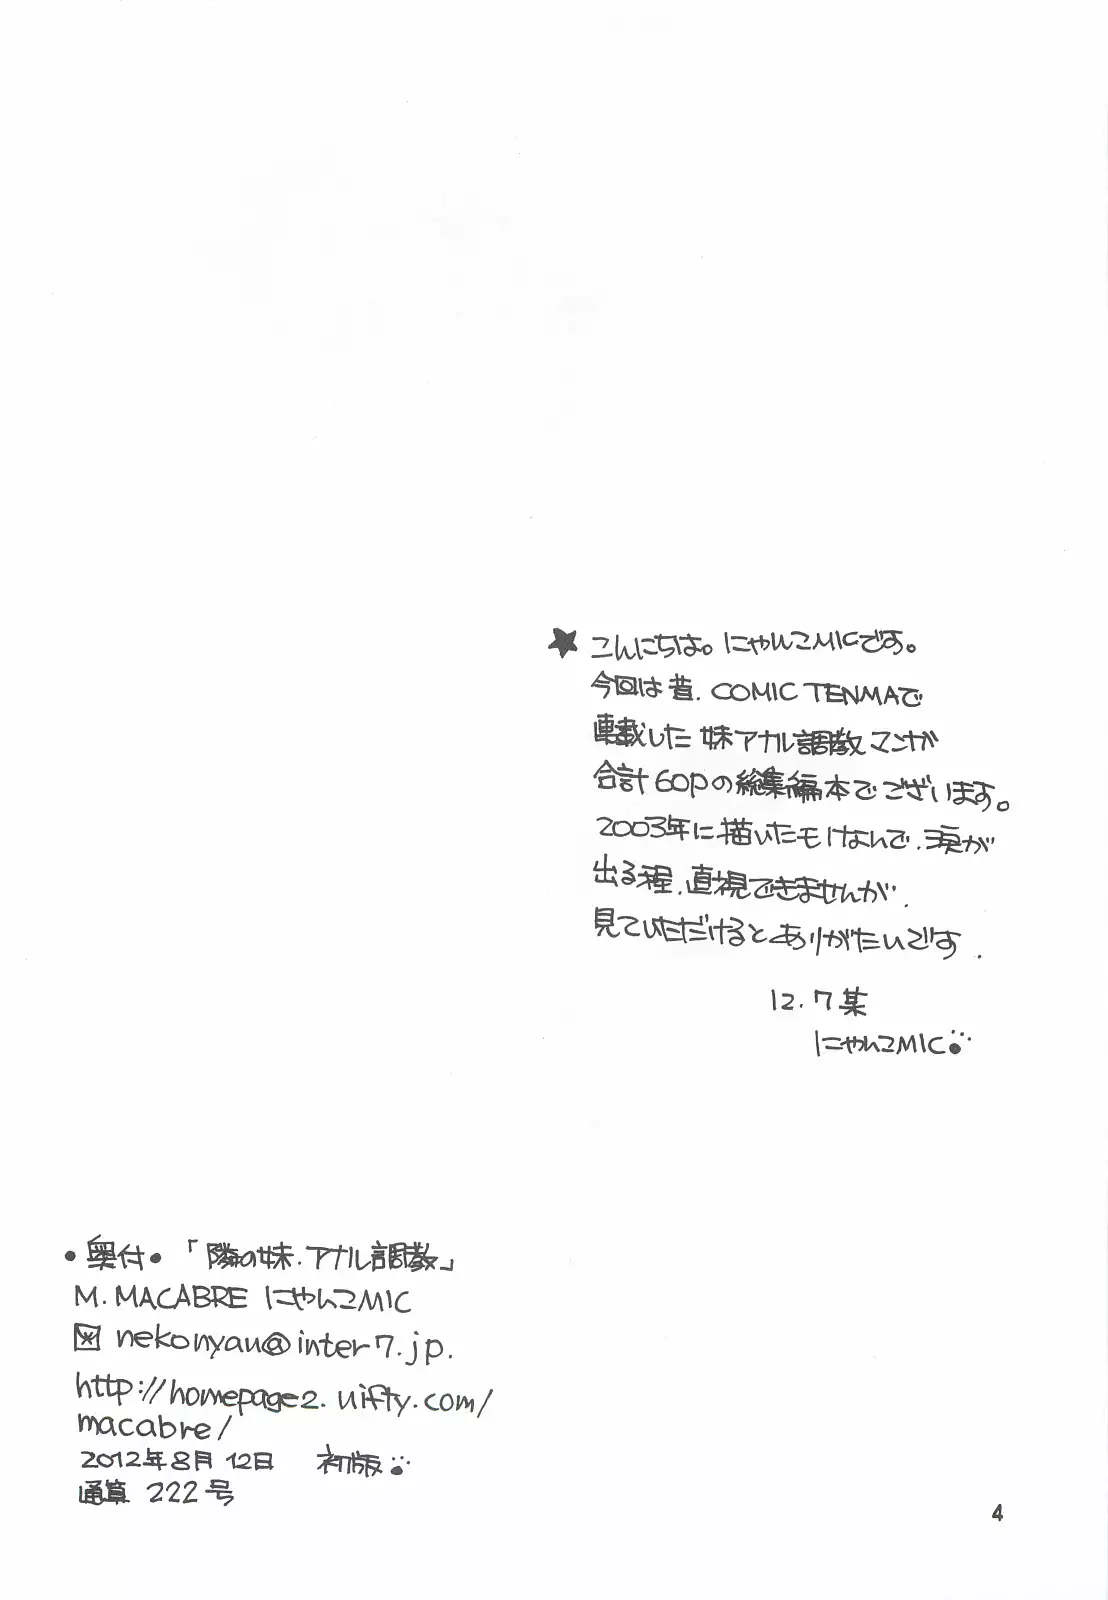 ★こんにちは。にゃんこMICです。
今回は昔、COMIC TENMAで
連載した妹アナル調教マンガ
合計60pの総集編本でございます。
2003年に描いたモけなんで、涙が
出る程、直視できませんが、
見ていただけるとありがたいです.
12.7某
にゃんこMIC
•奥付•「隣の妹.アナル調教」
M.MACABRE にゃんこMIC
nekonyau@inter7.jp.
http://homepage2.nifty.com/
macabre/
2012年8月12日 初版
通算 222号
4